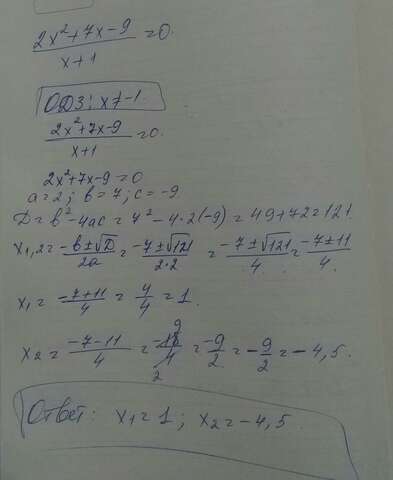 (2x²+7x-9)/(x+1) = 0.
ОДЗ: x≠-1.
(2x²+7x-9)/(x+1) = 0.
2x²+7x-9=0
a=2; b=7; c=-9.
D=b²-4ac=7²-4·2(-9)=49+72=121.
x₁,₂=(-b±√D)/(2a)=(-7±√121)/(2·2)=(-7±√121)/4=(-7±11)/4.
x₁=(-7+11)/4=4/4=1.
x₂=(-7-11)/4=-18/4=-9/2=-9/2=-4,5.
Ответ: x₁=1; x₂=-4,5.